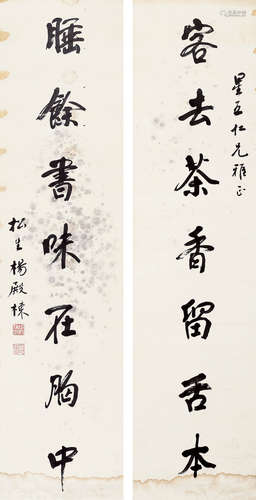 星五仁兄雅正
客去茶香留舌本
睡餘書味在胸中
松生楊殿楝